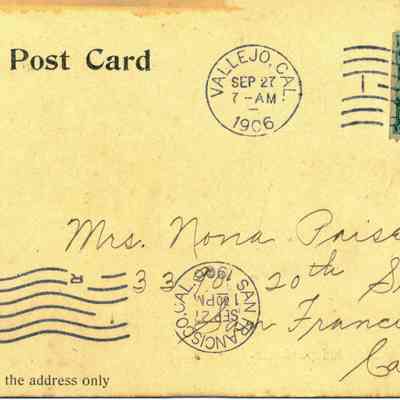 Post Card
VALLEJO, CAL.
SEP 27
7-AM
1906
Mrs. Nona
33 20th S
San Franc
Ca
SAN FRANCISCO, CAL.
SEP 27
1906
the address only